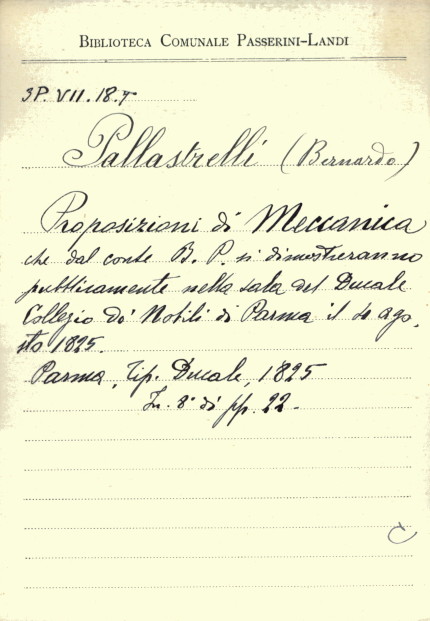 BIBLIOTECA COMUNALE PASSERINI-LANDI
3P. VII. 18. T
Pallastrelli (Bernardo)
Proposizioni di Meccanica
che dal conte B. P. si dimostreranno
pubblicamente nella sala del Ducale
Collegio de' Nobili di Parma il dì ago,
sto 1825.
Parma, Tip. Ducale, 1825
In. 8° di pp. 22.-
C